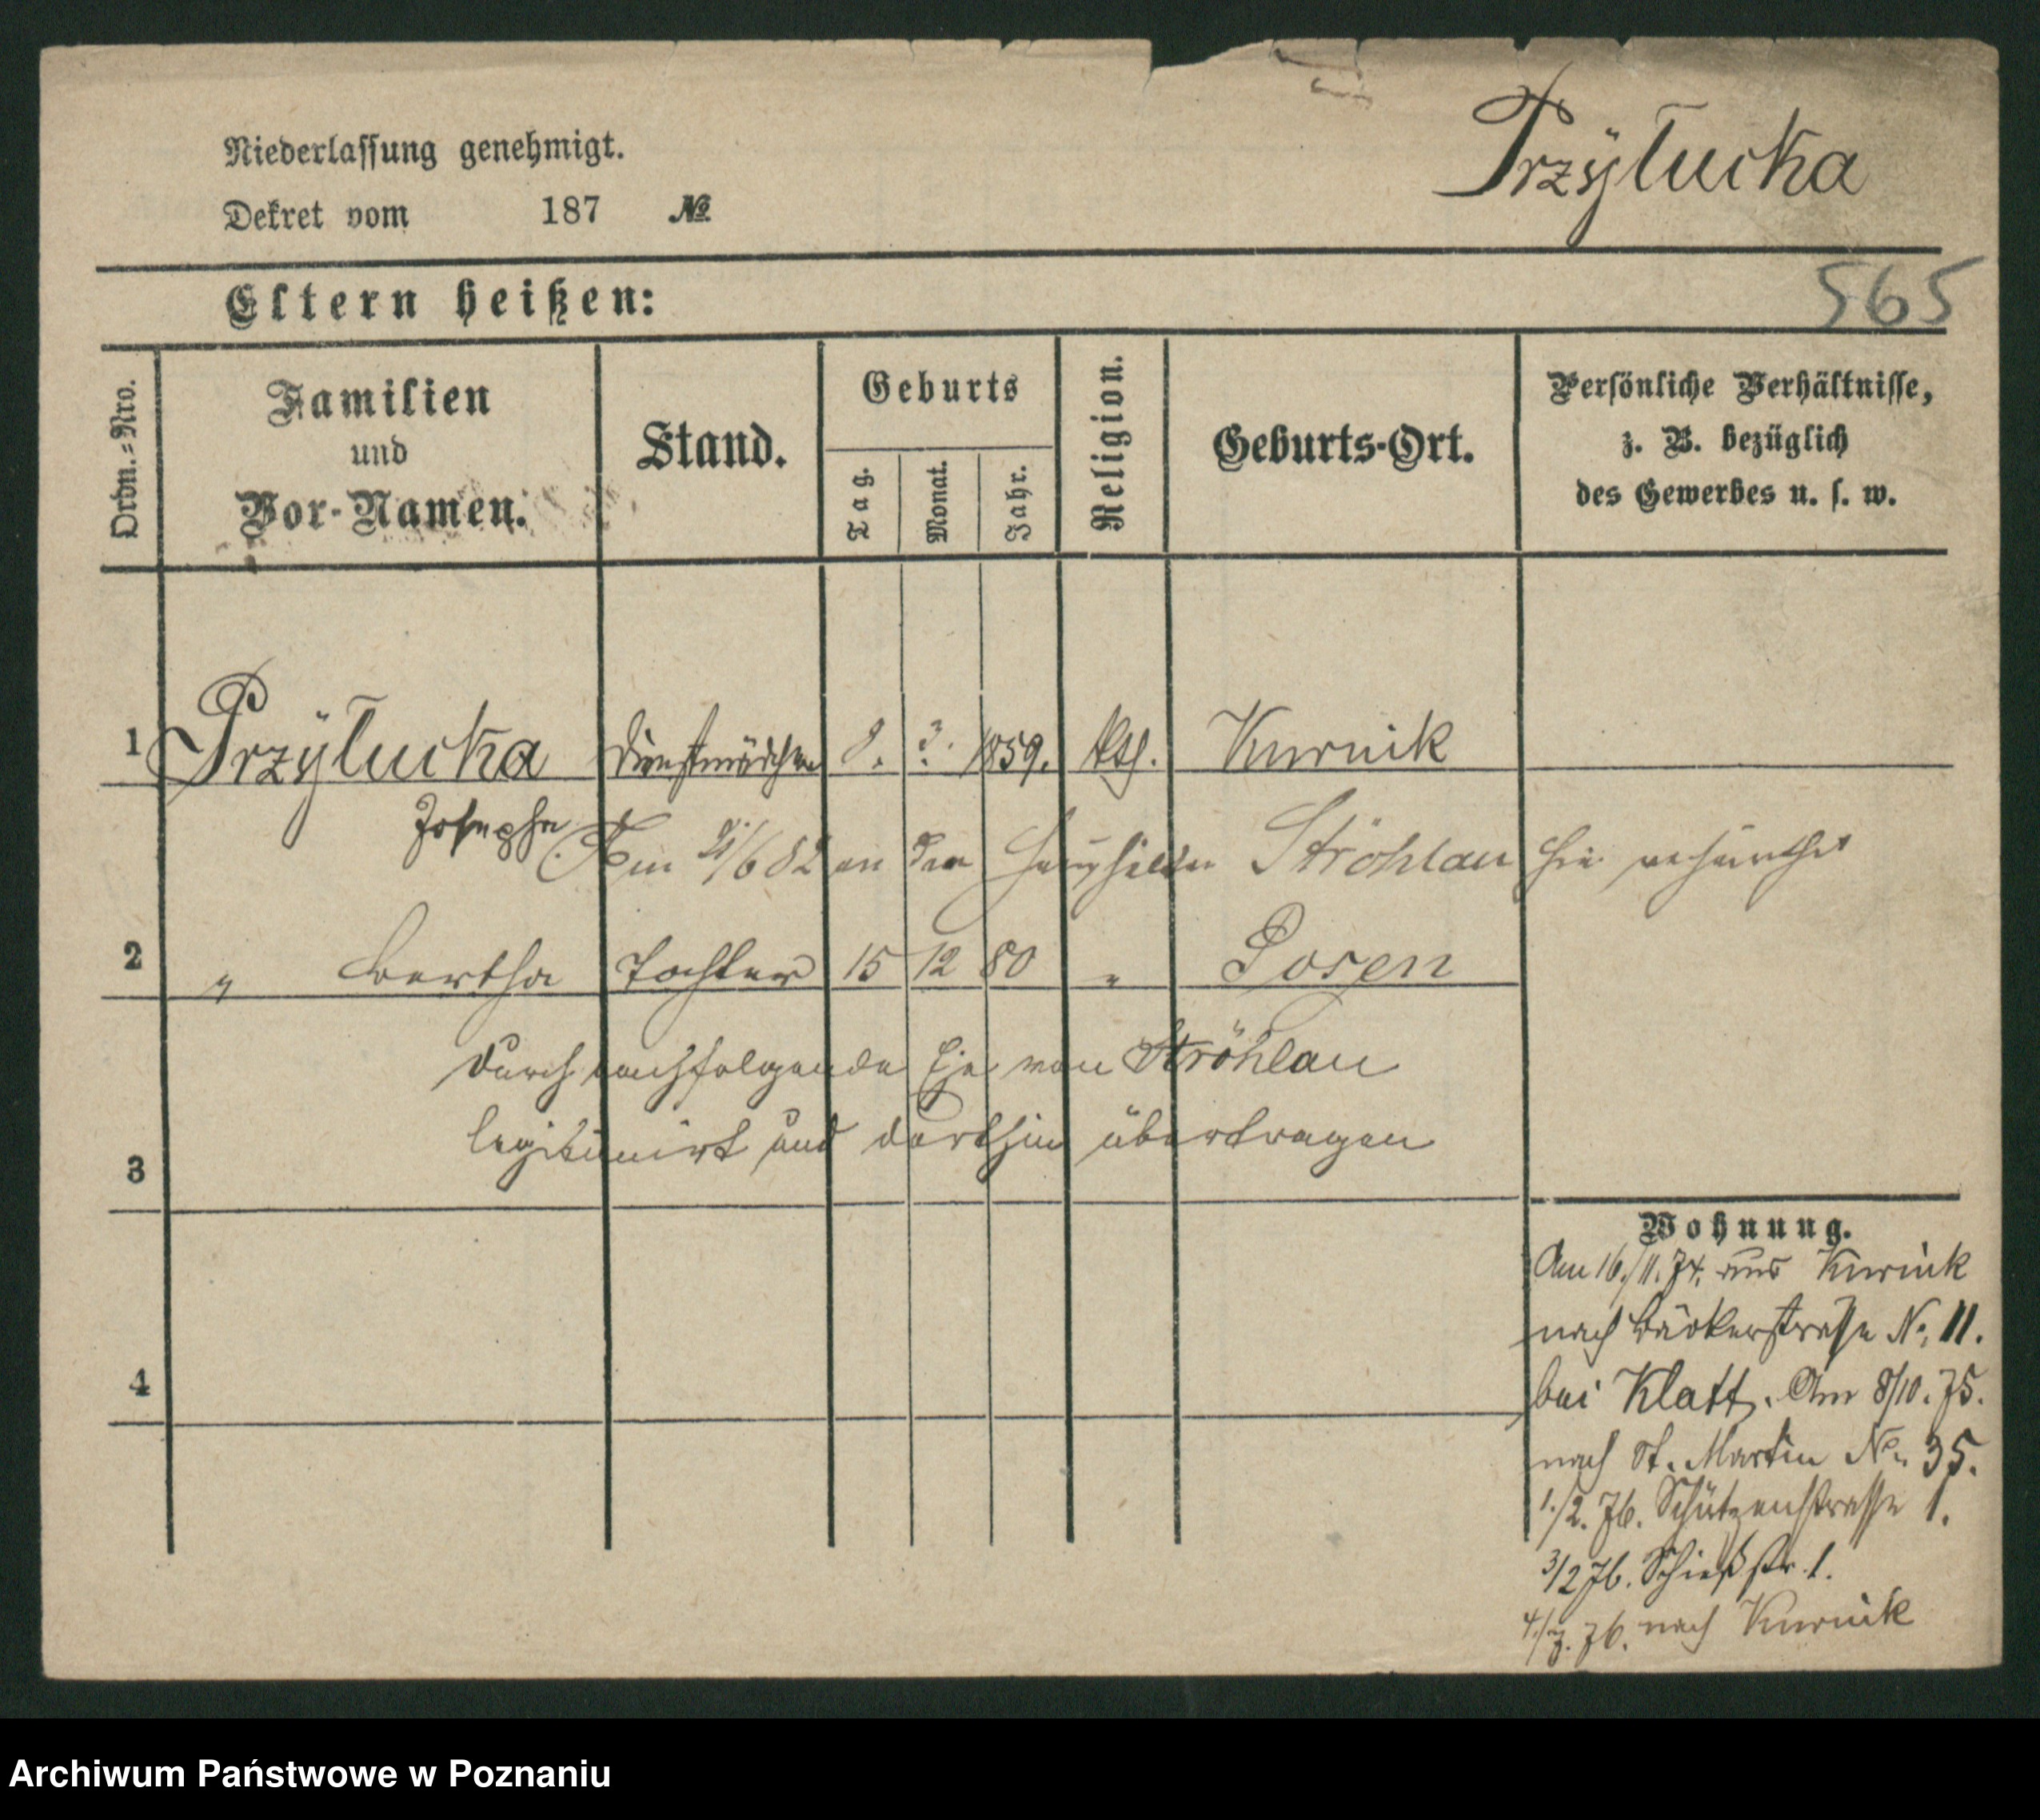 Przÿlucka
Niederlassung genehmigt.
Dekret vom 187 №
565
Eltern heißen:
Ordn.=Nro.
Familien
und
Vor-Namen.
Stand.
Geburts
Tag.
Monat.
Jahr.
Religion.
Geburts-Ort.
Persönliche Verhältnisse,
z. B. bezüglich
des Gewerbes u. s. w.
1 Przÿlucka Dienstmädchen 8. 3. 1859. kth. Kurnik
Josepha
Am 21/6 82 an den Haushälter Ströhlau hie verheirathet
2 " Bertha Tochter 15 12 80 " Posen
durch nachfolgende Ehe von Ströhlau
legitimirt und dorthin übertragen
3
4
Wohnung.
Am 16./11. 74. aus Kurnik
nach Bäckerstraße No. 11.
bei Klatt. Am 8/10. 75.
nach St. Martin No. 35.
1./2. 76. Schützenstrasse 1.
3/2 76. Schießstr. 1.
4./7. 76. nach Kurnik
Archiwum Państwowe w Poznaniu